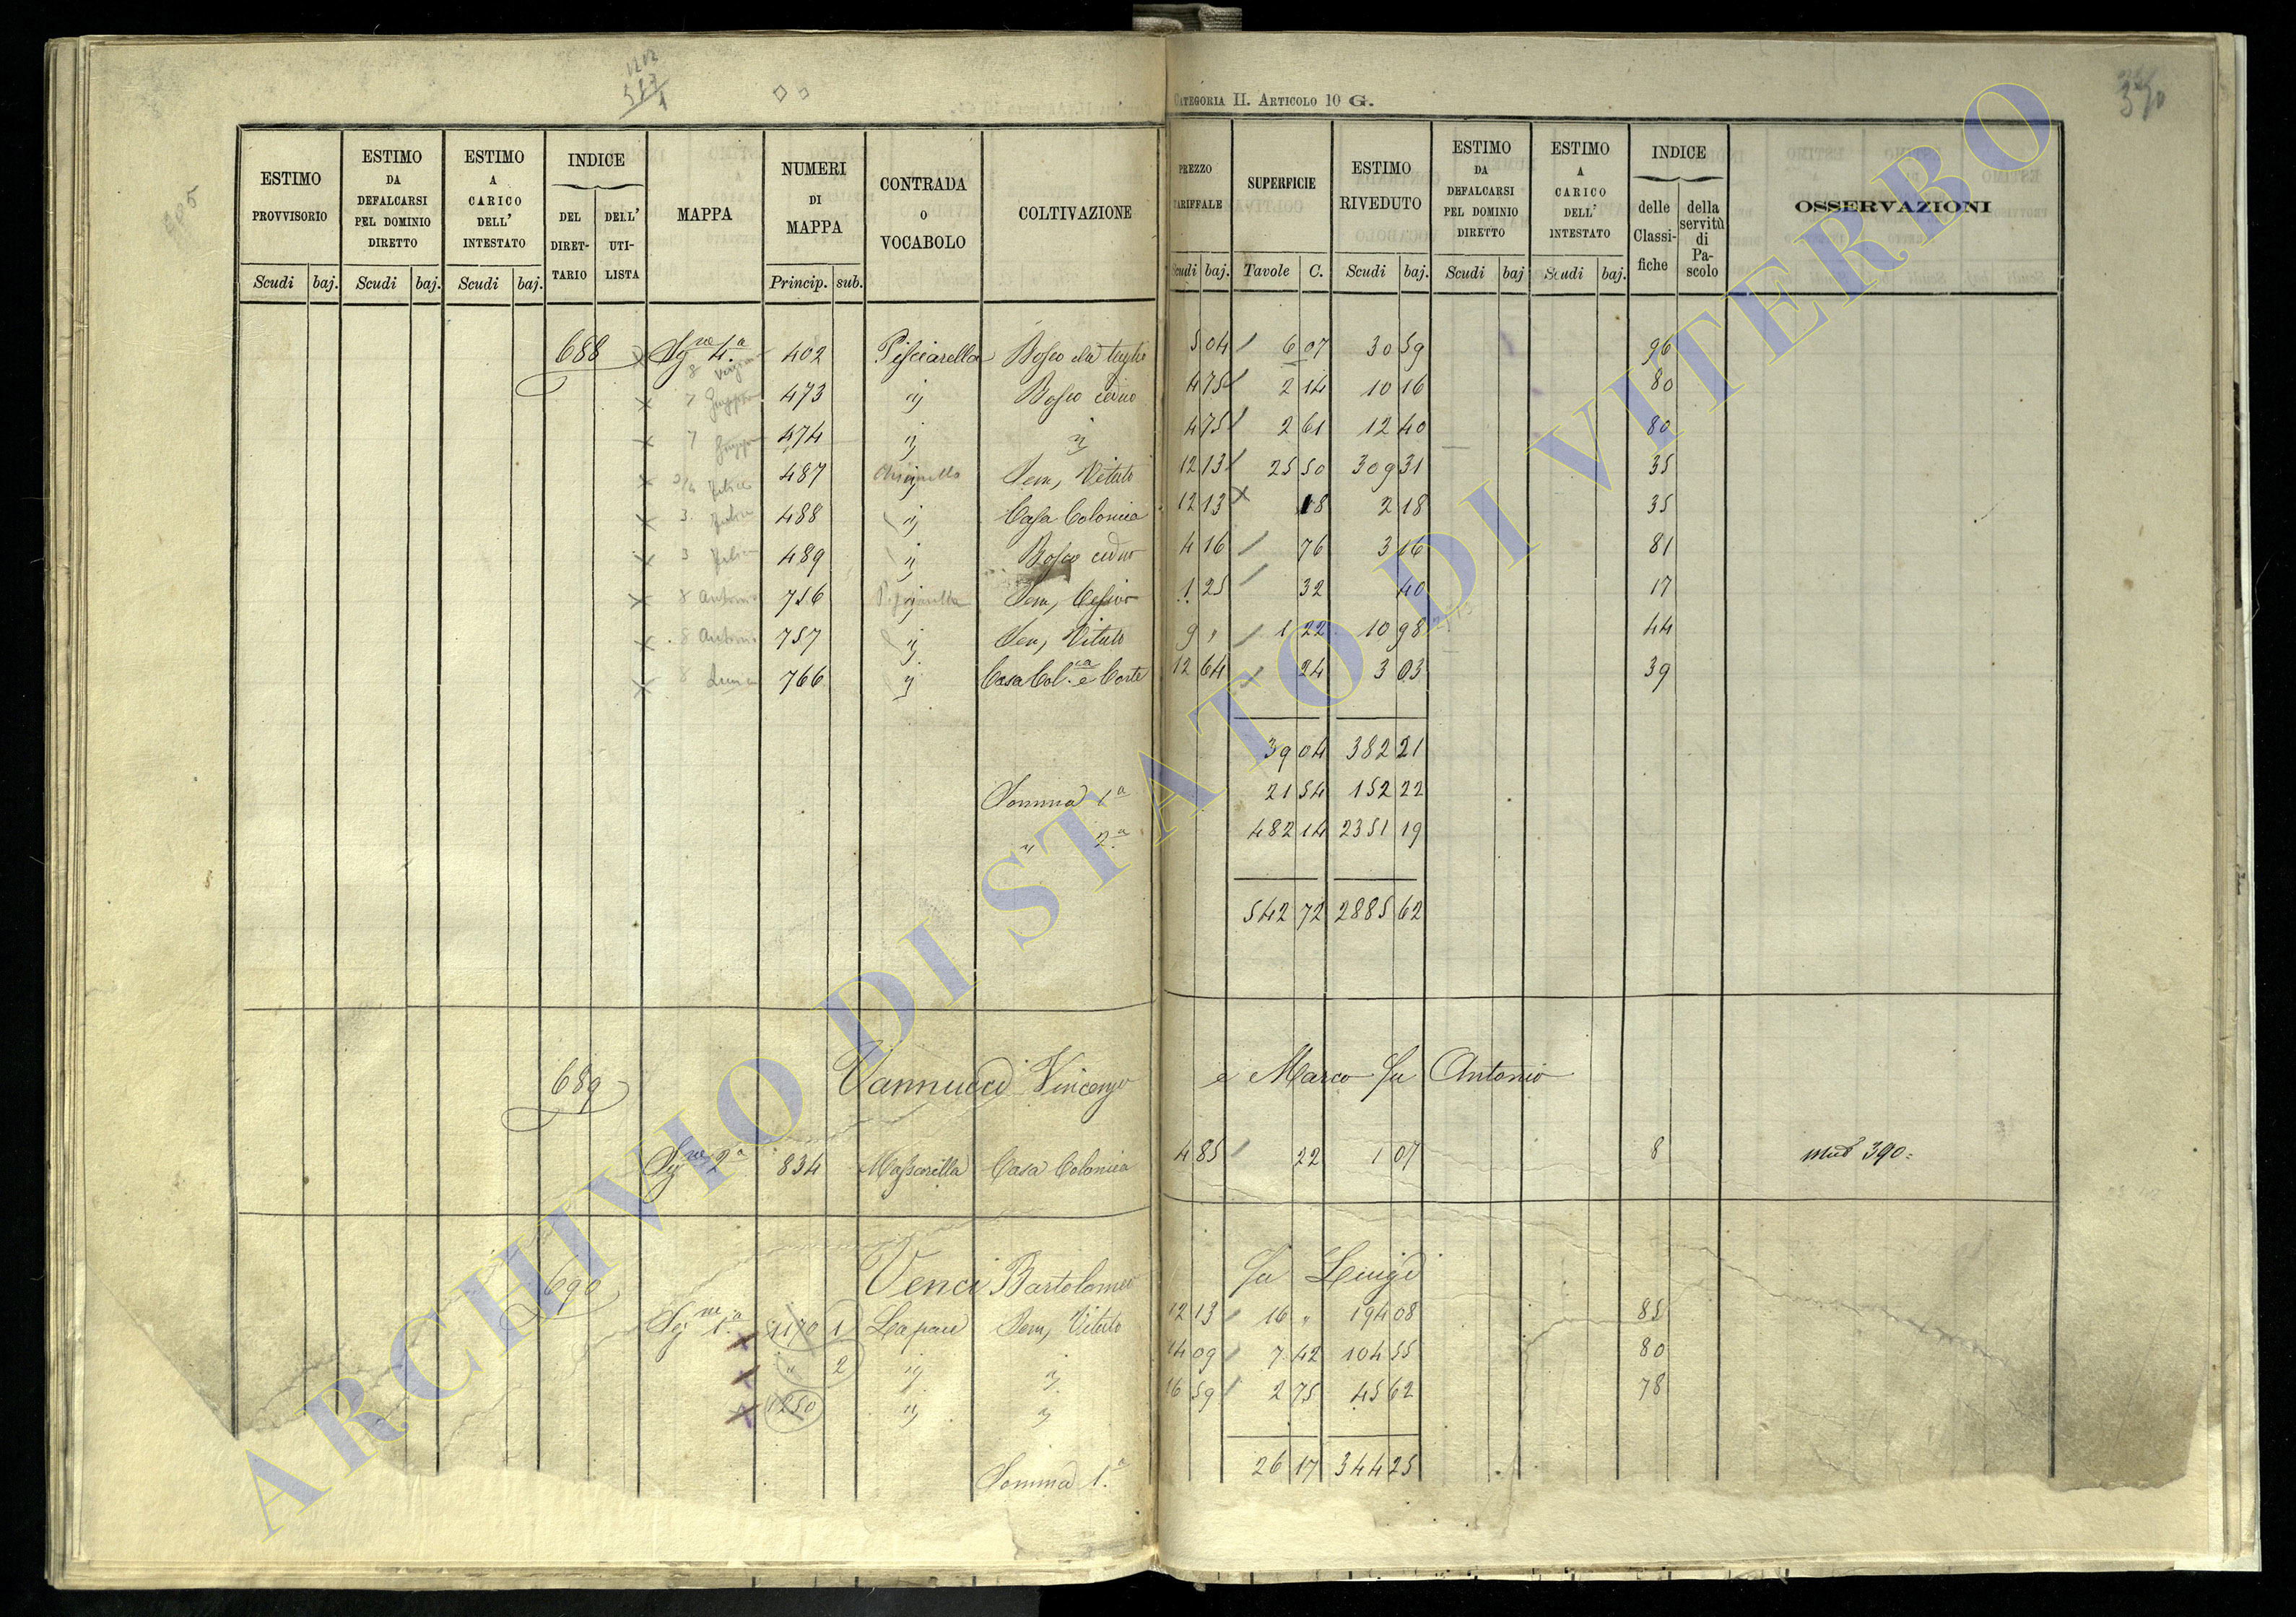 CATEGORIA II. ARTICOLO 10 G.
ESTIMO PROVVISORIO Scudi baj.
ESTIMO DA DEFALCARSI PEL DOMINIO DIRETTO Scudi baj.
ESTIMO A CARICO DELL' INTESTATO Scudi baj.
INDICE DEL DIRET-TARIO DELL' UTI-LISTA
MAPPA
NUMERI DI MAPPA Princip. sub.
CONTRADA O VOCABOLO
COLTIVAZIONE
PREZZO TARIFFALE Scudi baj.
SUPERFICIE Tavole C.
ESTIMO RIVEDUTO Scudi baj.
ESTIMO DA DEFALCARSI PEL DOMINIO DIRETTO Scudi baj
ESTIMO A CARICO DELL' INTESTATO Scudi baj.
INDICE delle Classi-fiche della servitù di Pa-scolo
OSSERVAZIONI
688 Sgne 4.a 402 Pisciarella Bosco da taglio 5 04 6 07 30 59 96
7 473 " Bosco ceduo 4 75 2 14 10 16 80
7 474 " " 4 75 2 61 12 40 80
487 " Sem, Vitato 12 13 25 50 309 31 35
3 488 " Casa Colonica 12 13 18 2 18 35
3 489 " Bosco ceduo 4 16 76 3 16 81
8 Antonio 756 " Sem, 1 25 32 40 17
8 Antonio 757 " Sem, Vitato 9 " 1 22 10 98 44
8 766 " Casa Col.ca e Corte 12 64 24 3 03 39
39 04 382 21
Somma 1a 21 54 152 22
" 2.a 482 14 2351 19
542 72 2885 62
689 Vannucci Vincenzo e Marco fu Antonio
Sgne 2a 834 Massarella Casa Colonica 4 85 22 1 07 8 390
690 Venci Bartolomeo fu Luigi
Sgne 1.a 1170 1 Sem, Vitato 12 13 16 " 194 08 85
" 2 " " 14 09 7 42 104 55 80
1250 " " 16 59 2 75 45 62 78
Somma 1.a 26 17 344 25
ARCHIVIO DI STATO DI VITERBO